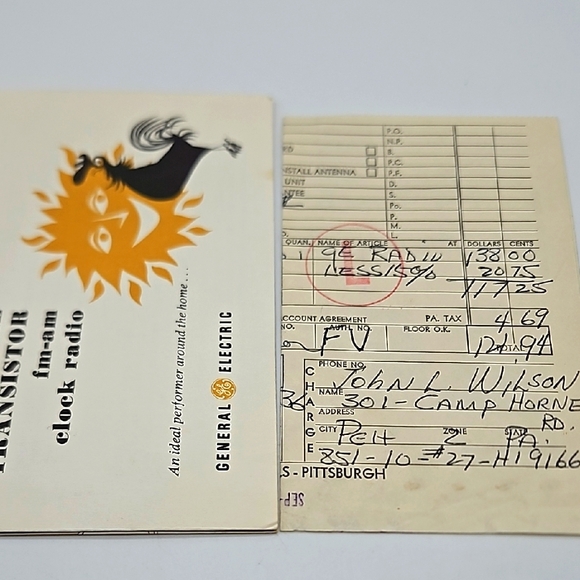 TRANSISTOR
fm-am
clock radio
An ideal performer around the home...
GENERAL GE ELECTRIC
P.O.
N.P.
B.
P.C.
INSTALL ANTENNA P.F.
UNIT D.
S.
Po.
P.
M.
L.
QUAN. NAME OF ARTICLE AT DOLLARS CENTS
1 GE RADIO 138 00
LESS 15% 20 75
117 25
ACCOUNT AGREEMENT PA. TAX 4 69
NO. AUTH. NO. FLOOR O.K.
FV TOTAL 121 94
CHARGE
PHONE NO.
NAME JOHN L. WILSON
ADDRESS 301 - CAMP HORNE RD.
CITY PGH ZONE 2 STATE PA.
851-10-#27-H19166
S - PITTSBURGH
SEP